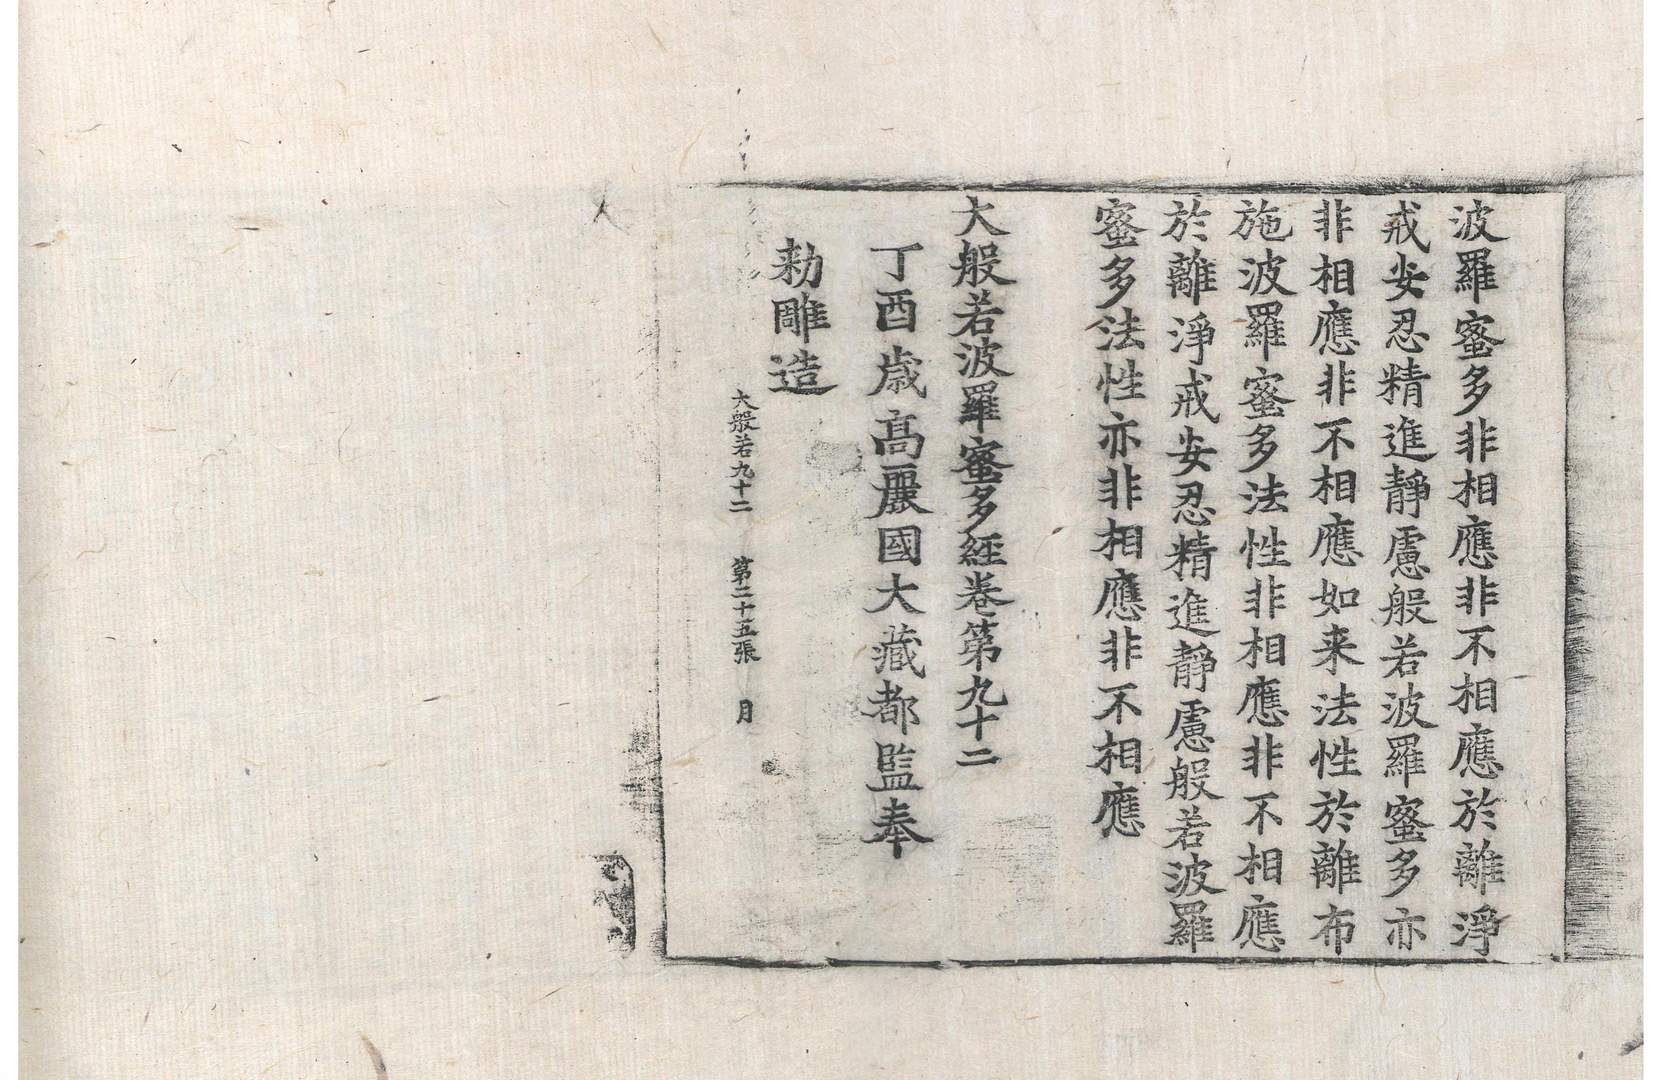 波羅蜜多非相應非不相應於離淨
戒安忍精進靜慮般若波羅蜜多亦
非相應非不相應如来法性於離布
施波羅蜜多法性非相應非不相應
於離淨戒安忍精進靜慮般若波羅
蜜多法性亦非相應非不相應
大般若波羅蜜多經卷第九十二
丁酉歲高麗國大藏都監奉
勑雕造
大般若九十二 第二十五張 月